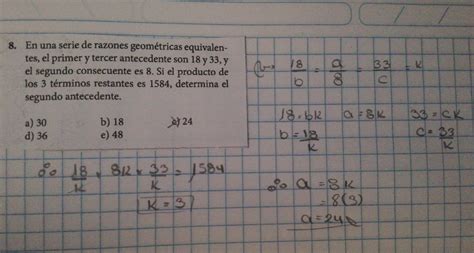 8. En una serie de razones geométricas equivalen-
tes, el primer y tercer antecedente son 18 y 33, y
el segundo consecuente es 8. Si el producto de
los 3 términos restantes es 1584, determina el
segundo antecedente.
a) 30 b) 18 c) 24
d) 36 e) 48
18/b = a/8 = 33/c = k
18 = bk a = 8k 33 = ck
b = 18/k c = 33/k
18/k × 8k × 33/k = 1584
k = 3
a = 8k
= 8(3)
a = 24